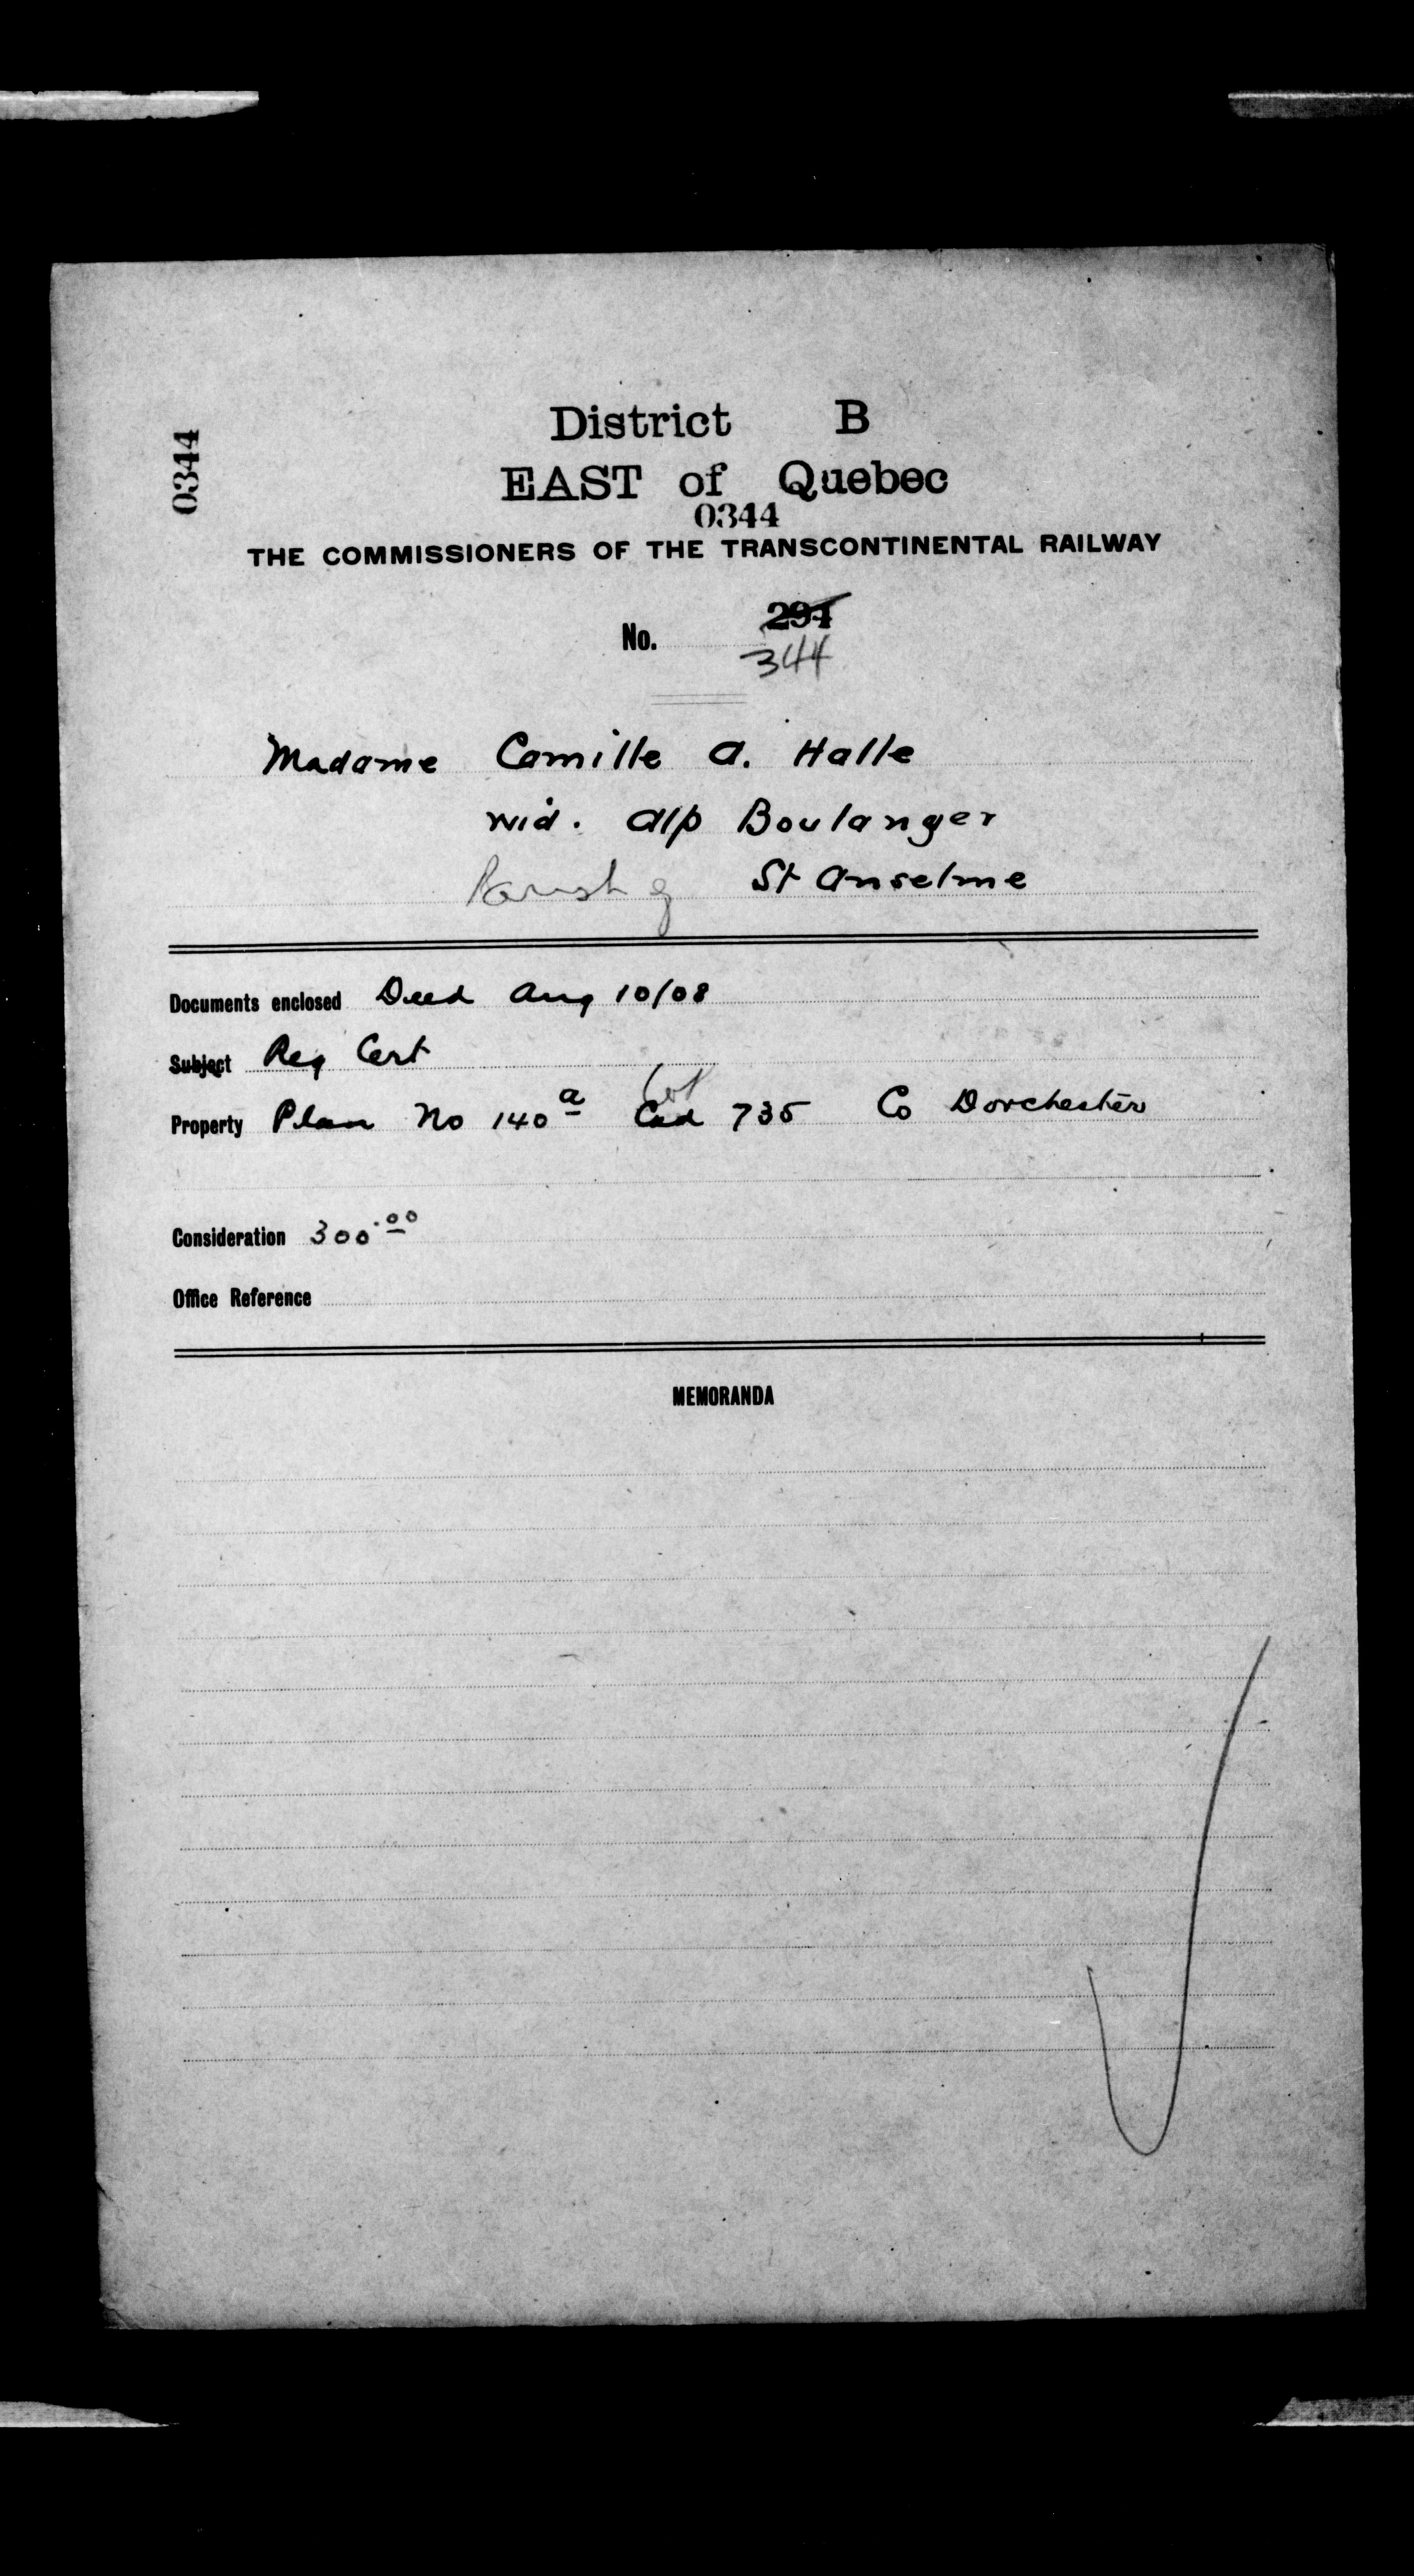 0344
District B
EAST of Quebec
0344
THE COMMISSIONERS OF THE TRANSCONTINENTAL RAILWAY
No. 294
344
Madame Camille A. Halle
wid. Alp Boulanger
Parish of St Anselme
Documents enclosed Deed Aug 10/08
Subject Reg Cert
Lot
Property Plan No 140 a Cad 735 Co Dorchester
Consideration 300.00
Office Reference
MEMORANDA